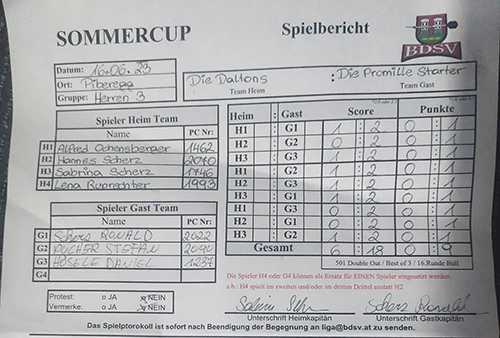 SOMMERCUP
Spielbericht
BDSV
Datum: 16.06.23
Ort: Piberegg
Gruppe: Herren 3
Die Daltons : Die Promille Starter
Team Heim Team Gast
Spieler Heim Team
Name PC Nr:
H1 Alfred Ochensberger 1462
H2 Hannes Scherz 2070
H3 Sabrina Scherz 1746
H4 Lena Ruprechter 1993
Spieler Gast Team
Name PC Nr:
G1 Scherz RONALD 2022
G2 PUCHER STEFAN 2090
G3 HÖSELE DANIEL 1237
G4
Heim : Gast Score Punkte
H1 : G1 1 : 2 0 : 1
H2 : G2 0 : 2 0 : 1
H3 : G3 1 : 2 0 : 1
H1 : G2 1 : 2 0 : 1
H2 : G3 1 : 2 0 : 1
H3 : G1 1 : 2 0 : 1
H1 : G3 0 : 2 0 : 1
H2 : G1 0 : 2 0 : 1
H3 : G2 1 : 2 0 : 1
Gesamt 6 : 18 0 : 9
501 Double Out / Best of 3 / 16.Runde Bull
Die Spieler H4 oder G4 können als Ersatz für EINEN Spieler eingesetzt werden.
z.b.: H4 spielt im zweiten und/oder im dritten Drittel anstatt H2
Protest: o JA NEIN
Vermerke: o JA NEIN
Unterschrift Heimkapitän Unterschrift Gastkapitän
Das Spielptorokoll ist sofort nach Beendigung der Begegnung an liga@bdsv.at zu senden.